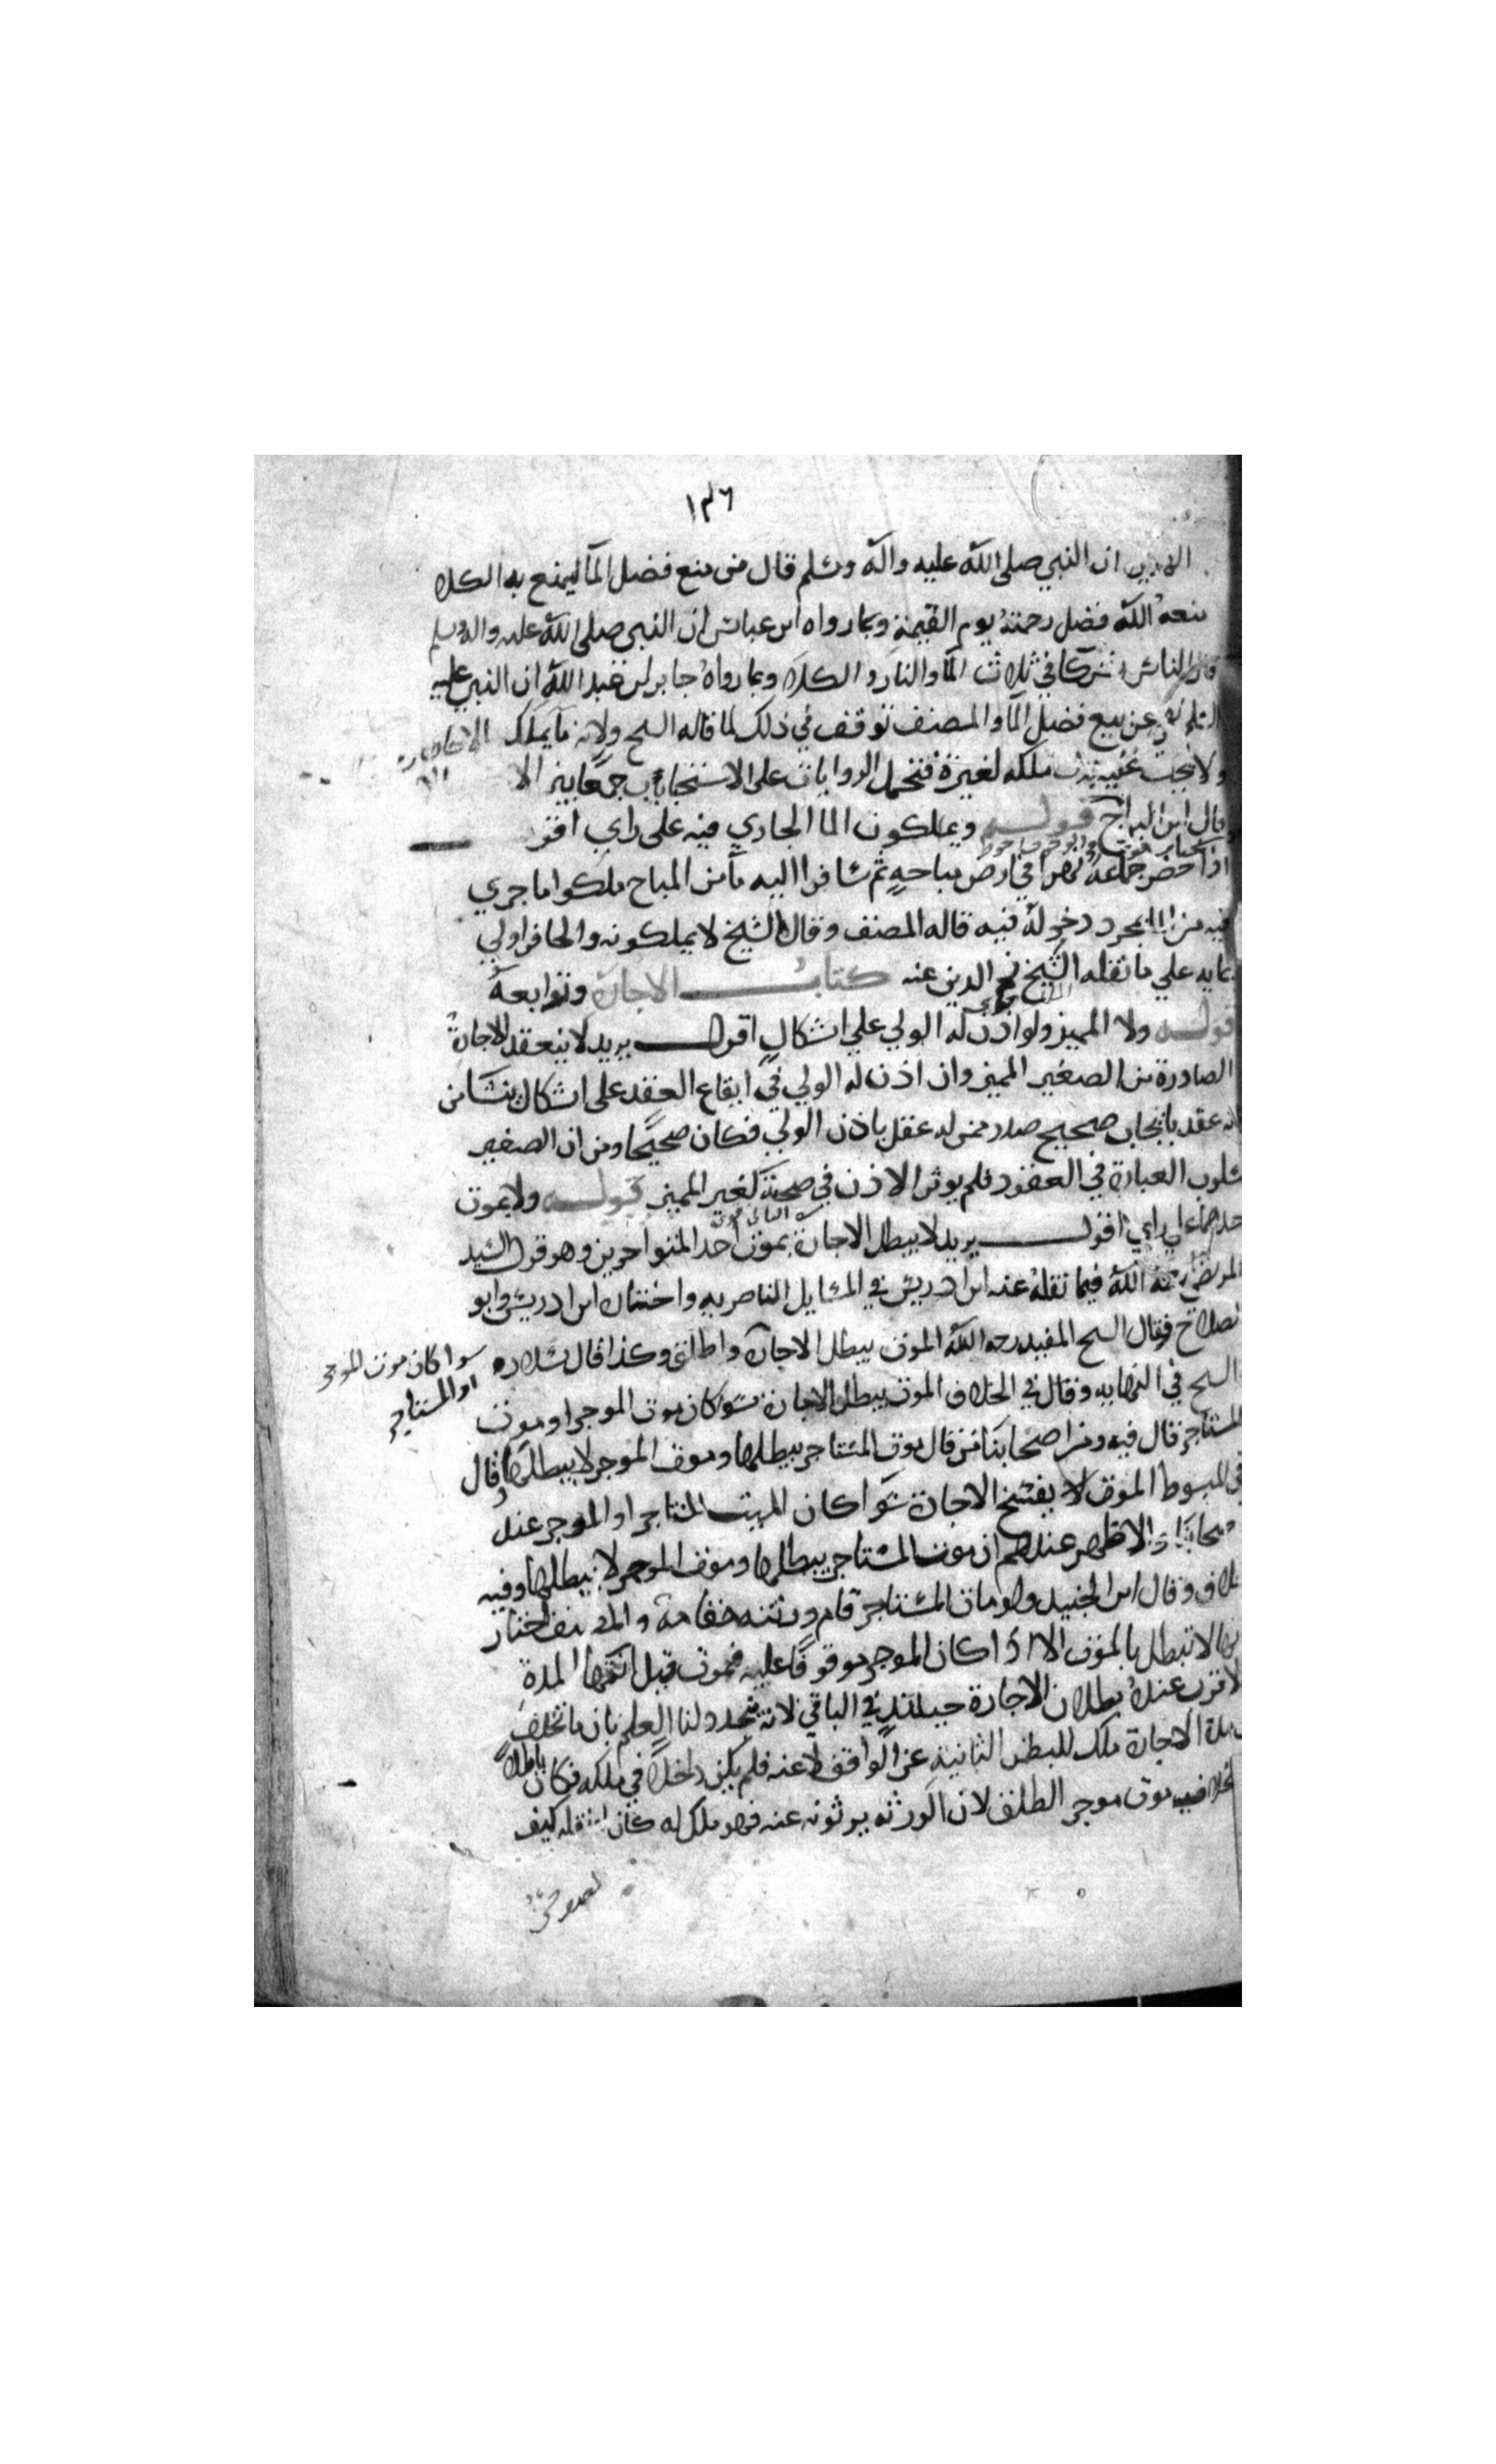 ١٣٦
ان النبي صلى الله عليه واله وسلم قال من منع فضل المآ ليمنع به الكلا
منعه الله فضل رحمته يوم القيمة وبما رواه ابن عباس ان النبي صلى الله عليه واله وسلم
قال الناس شركا في ثلاث المآ والنار والكلا وبما رواه جابر بن عبد الله ان النبي عليه
السلم نهى عن بيع فضل المآ والمصنف توقف في ذلك لما قاله الشيخ ولانه مآ يملك
ولا يجب عليه بذل ملكه لغيره فتحمل الروايات على الاستحباب جمعا بين الا
قال ابن البراج قوله ويملكون الما الجاري فيه على راي اقول
اذا حفر جماعة نهرا في ارض مباحة ثم ساقوا اليه مآ من المباح ملكوا ما جرى
فيه من الما بمجرد دخوله فيه قاله المصنف وقال الشيخ لا يملكونه والحافر اولى
بمايه على ما نقله الشيخ نجم الدين عنه كتاب الاجارة وتوابعه
قوله ولا المميز ولو اذن له الولي على اشكال اقول يريد لا ينعقد الاجارة
الصادرة من الصغير المميز وان اذن له الولي في ايقاع العقد على اشكال ينشا من
انه عقد بايجاب صحيح صدر ممن له عقل باذن الولي فكان صحيحا ومن ان الصغير
مسلوب العبارة في العقود فلم يوثر الاذن في صحته كغير المميز قوله ولا بموت
احدهما على راي اقول يريد لا يبطل الاجارة بموت احد المتواجرين وهو قول السيد
المرتضى رحمه الله فيما نقله عنه ابن ادريس في المسايل الناصريه واختاره ابن ادريس وابو
الصلاح وقال الشيخ المفيد رحمه الله الموت يبطل الاجارة واطلق وكذا قال سلار و
سوا كان موت الموجر
او المستاجر
الشيخ في النهايه وقال في الخلاف الموت يبطل الاجارة سوا كان موت الموجر او موت
المستاجر قال فيه ومن اصحابنا من قال موت المستاجر يبطلها وموت الموجر لا يبطلها وقال
في المبسوط الموت لا يفسخ الاجارة سوا كان الميت المستاجر او الموجر عند
اصحابنا والاظهر عندهم ان موت المستاجر يبطلها وموت الموجر لا يبطلها وفيه
خلاف وقال ابن الجنيد ولو مات المستاجر قام ورثته مقامه والمصنف اختار
انها لا تبطل بالموت الا اذا كان الموجر موقوفا عليه فيموت قبل انتها المدة
الاقرب عنده بطلان الاجارة حينئذ في الباقي لانه تجدد لنا العلم بان ما تخلف
من مدة الاجارة ملك للبطن الثانية عن الواقف لا عنه فلم يكن داخلا في ملكه فكان باطلا
بخلاف موت موجر الطلق لان الورثه يرثونه عنه فهو ملك له كان نقله كيف